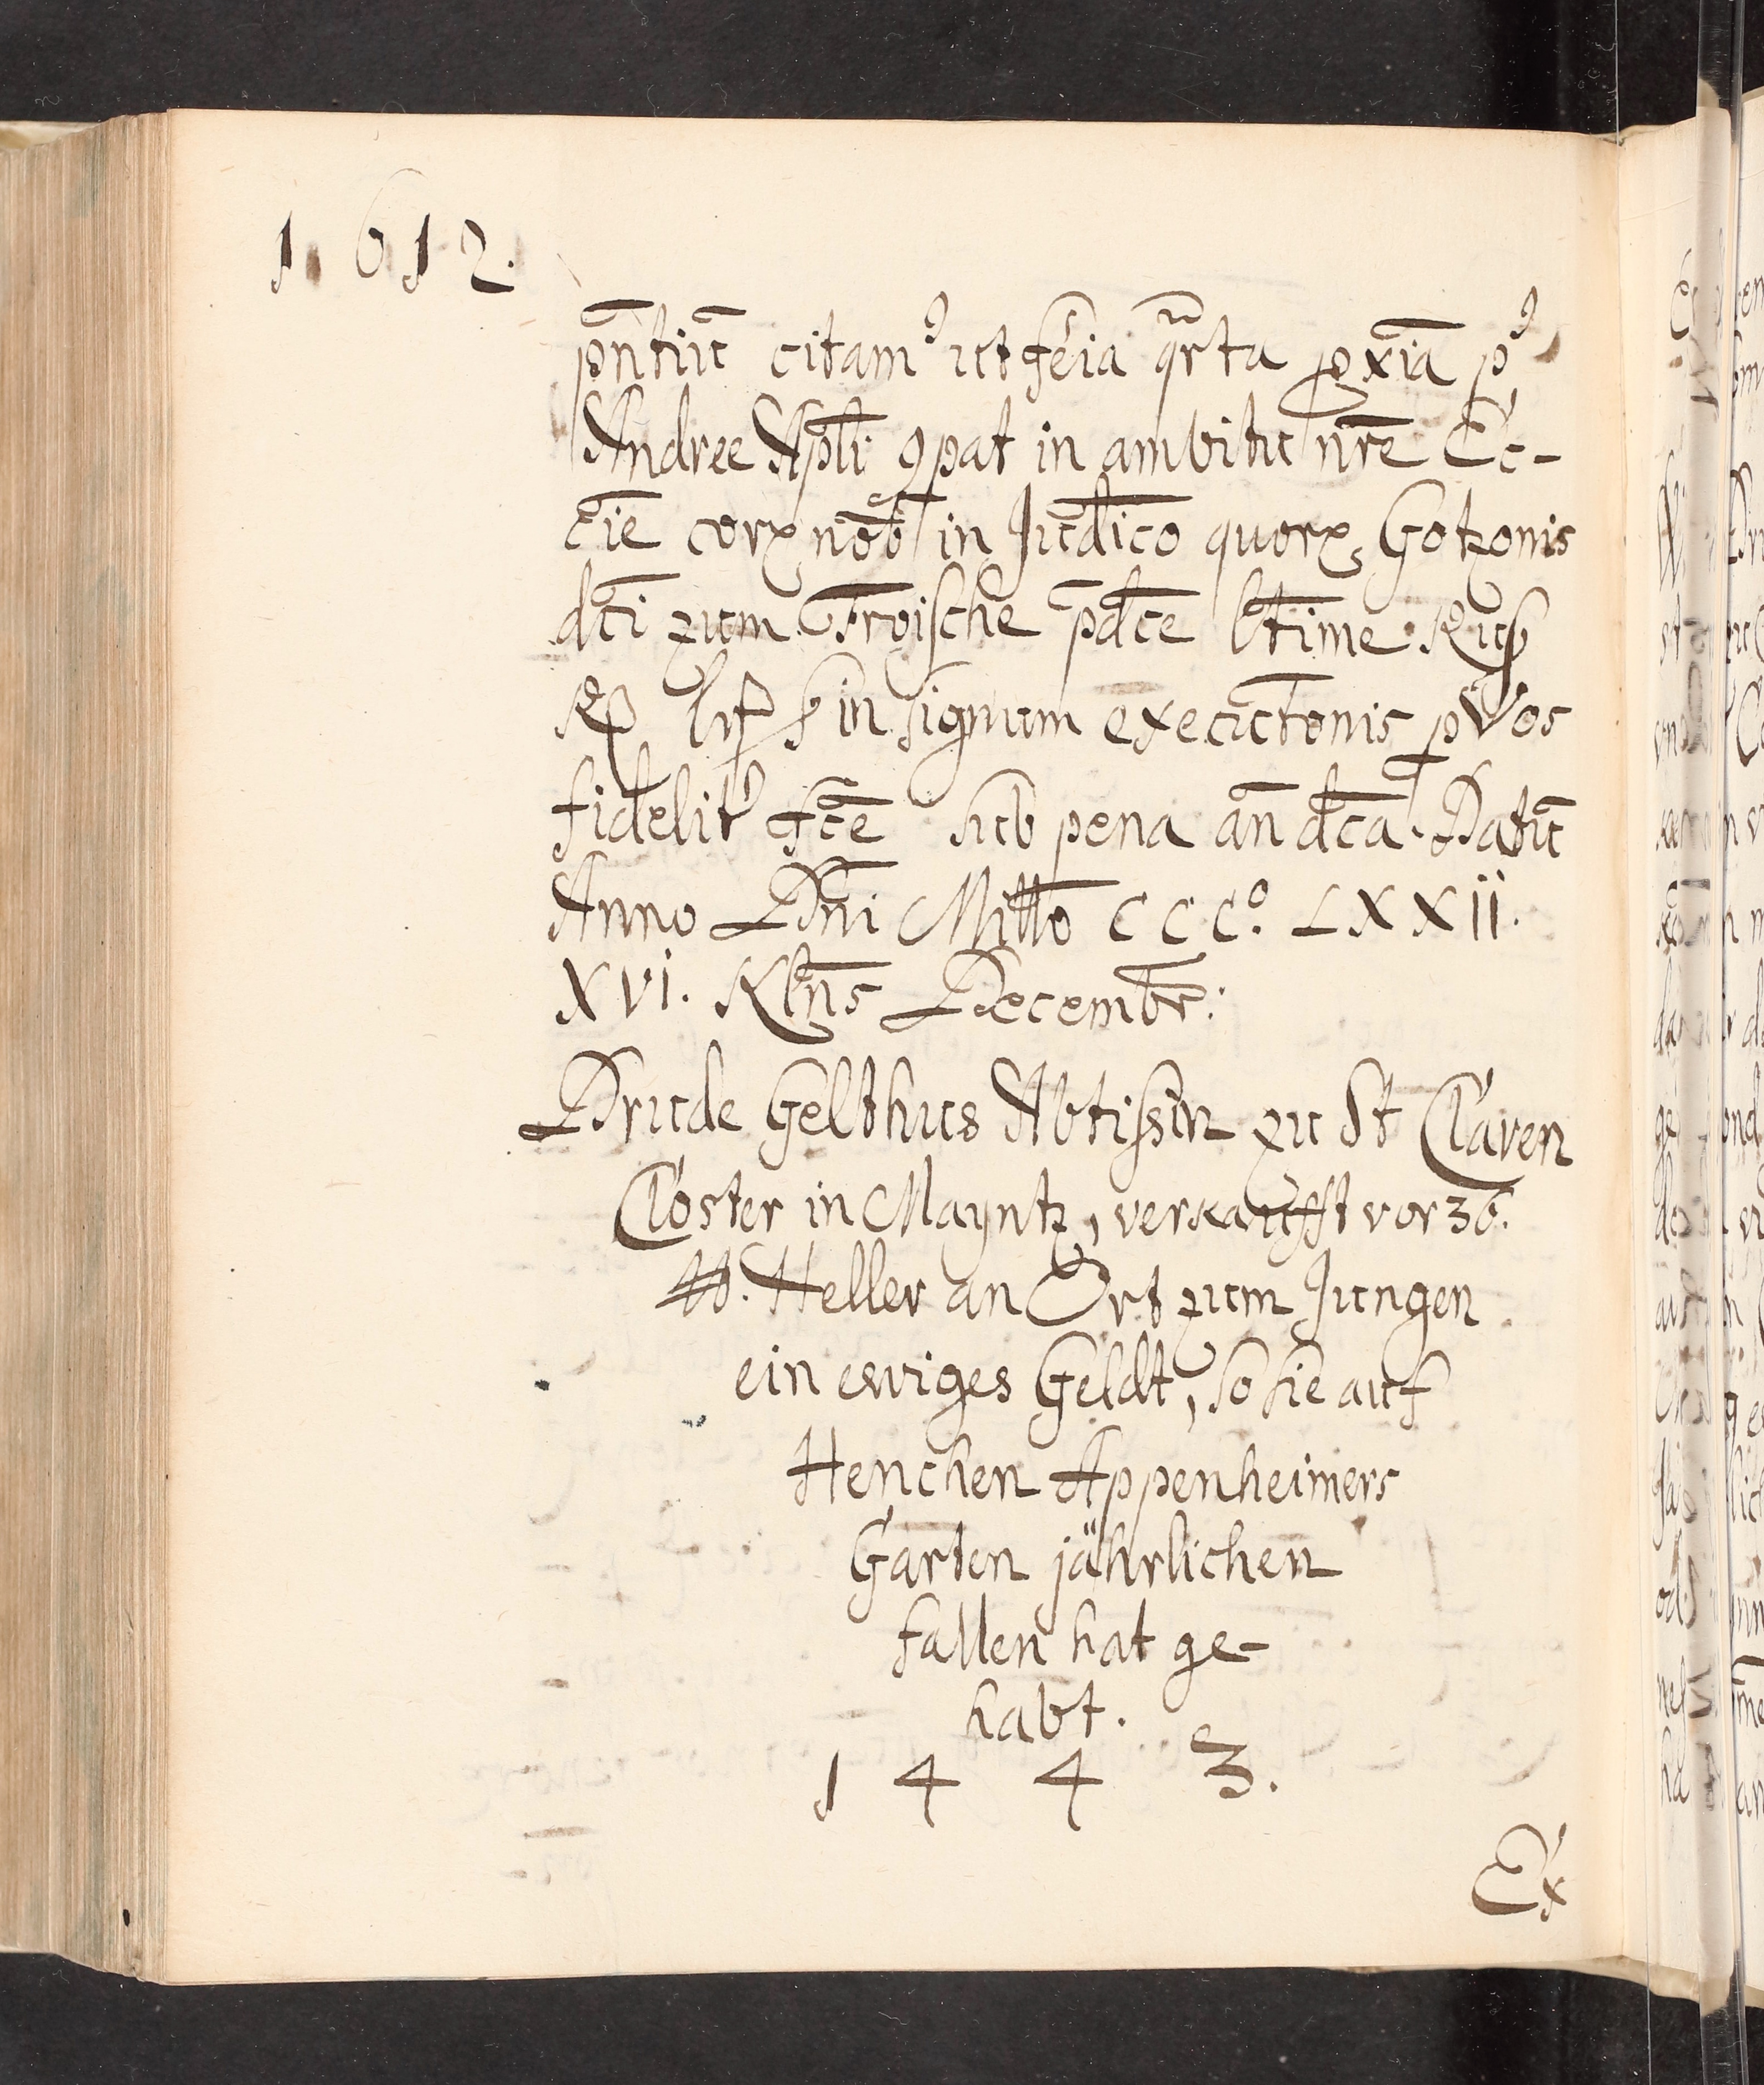 1612.
p̄ntiū citam⁹ ut fe͞ia qr̄ta ꝓxīa p⁹
Andree Apl̄i ꝯpat in ambitu nr̄e Ec-
cīe corꝝ nōb in Jud̄ico quorꝝ Gotzonis
dc̄i zum Froische p̄dc̄e l̄time.
in signum executōnis ꝑ Vos
fidelitʼ fc̄e sub pena an̄ dc̄a. Datū
Anno Dn̄i Mill̄o CCC.º LXXii.
XVi. Kln̄s Decembr̄:
Drude Gelthus Abtissin zu St Claren
Closter in Mayntz, verkaufft vor 36.
lb. Heller an Ort zum Jungen
ein ewiges Geldt, so sie auf
Henchen Appenheimers
Garten jährlichen
fallen hat ge-
habt.
1443.
Ex